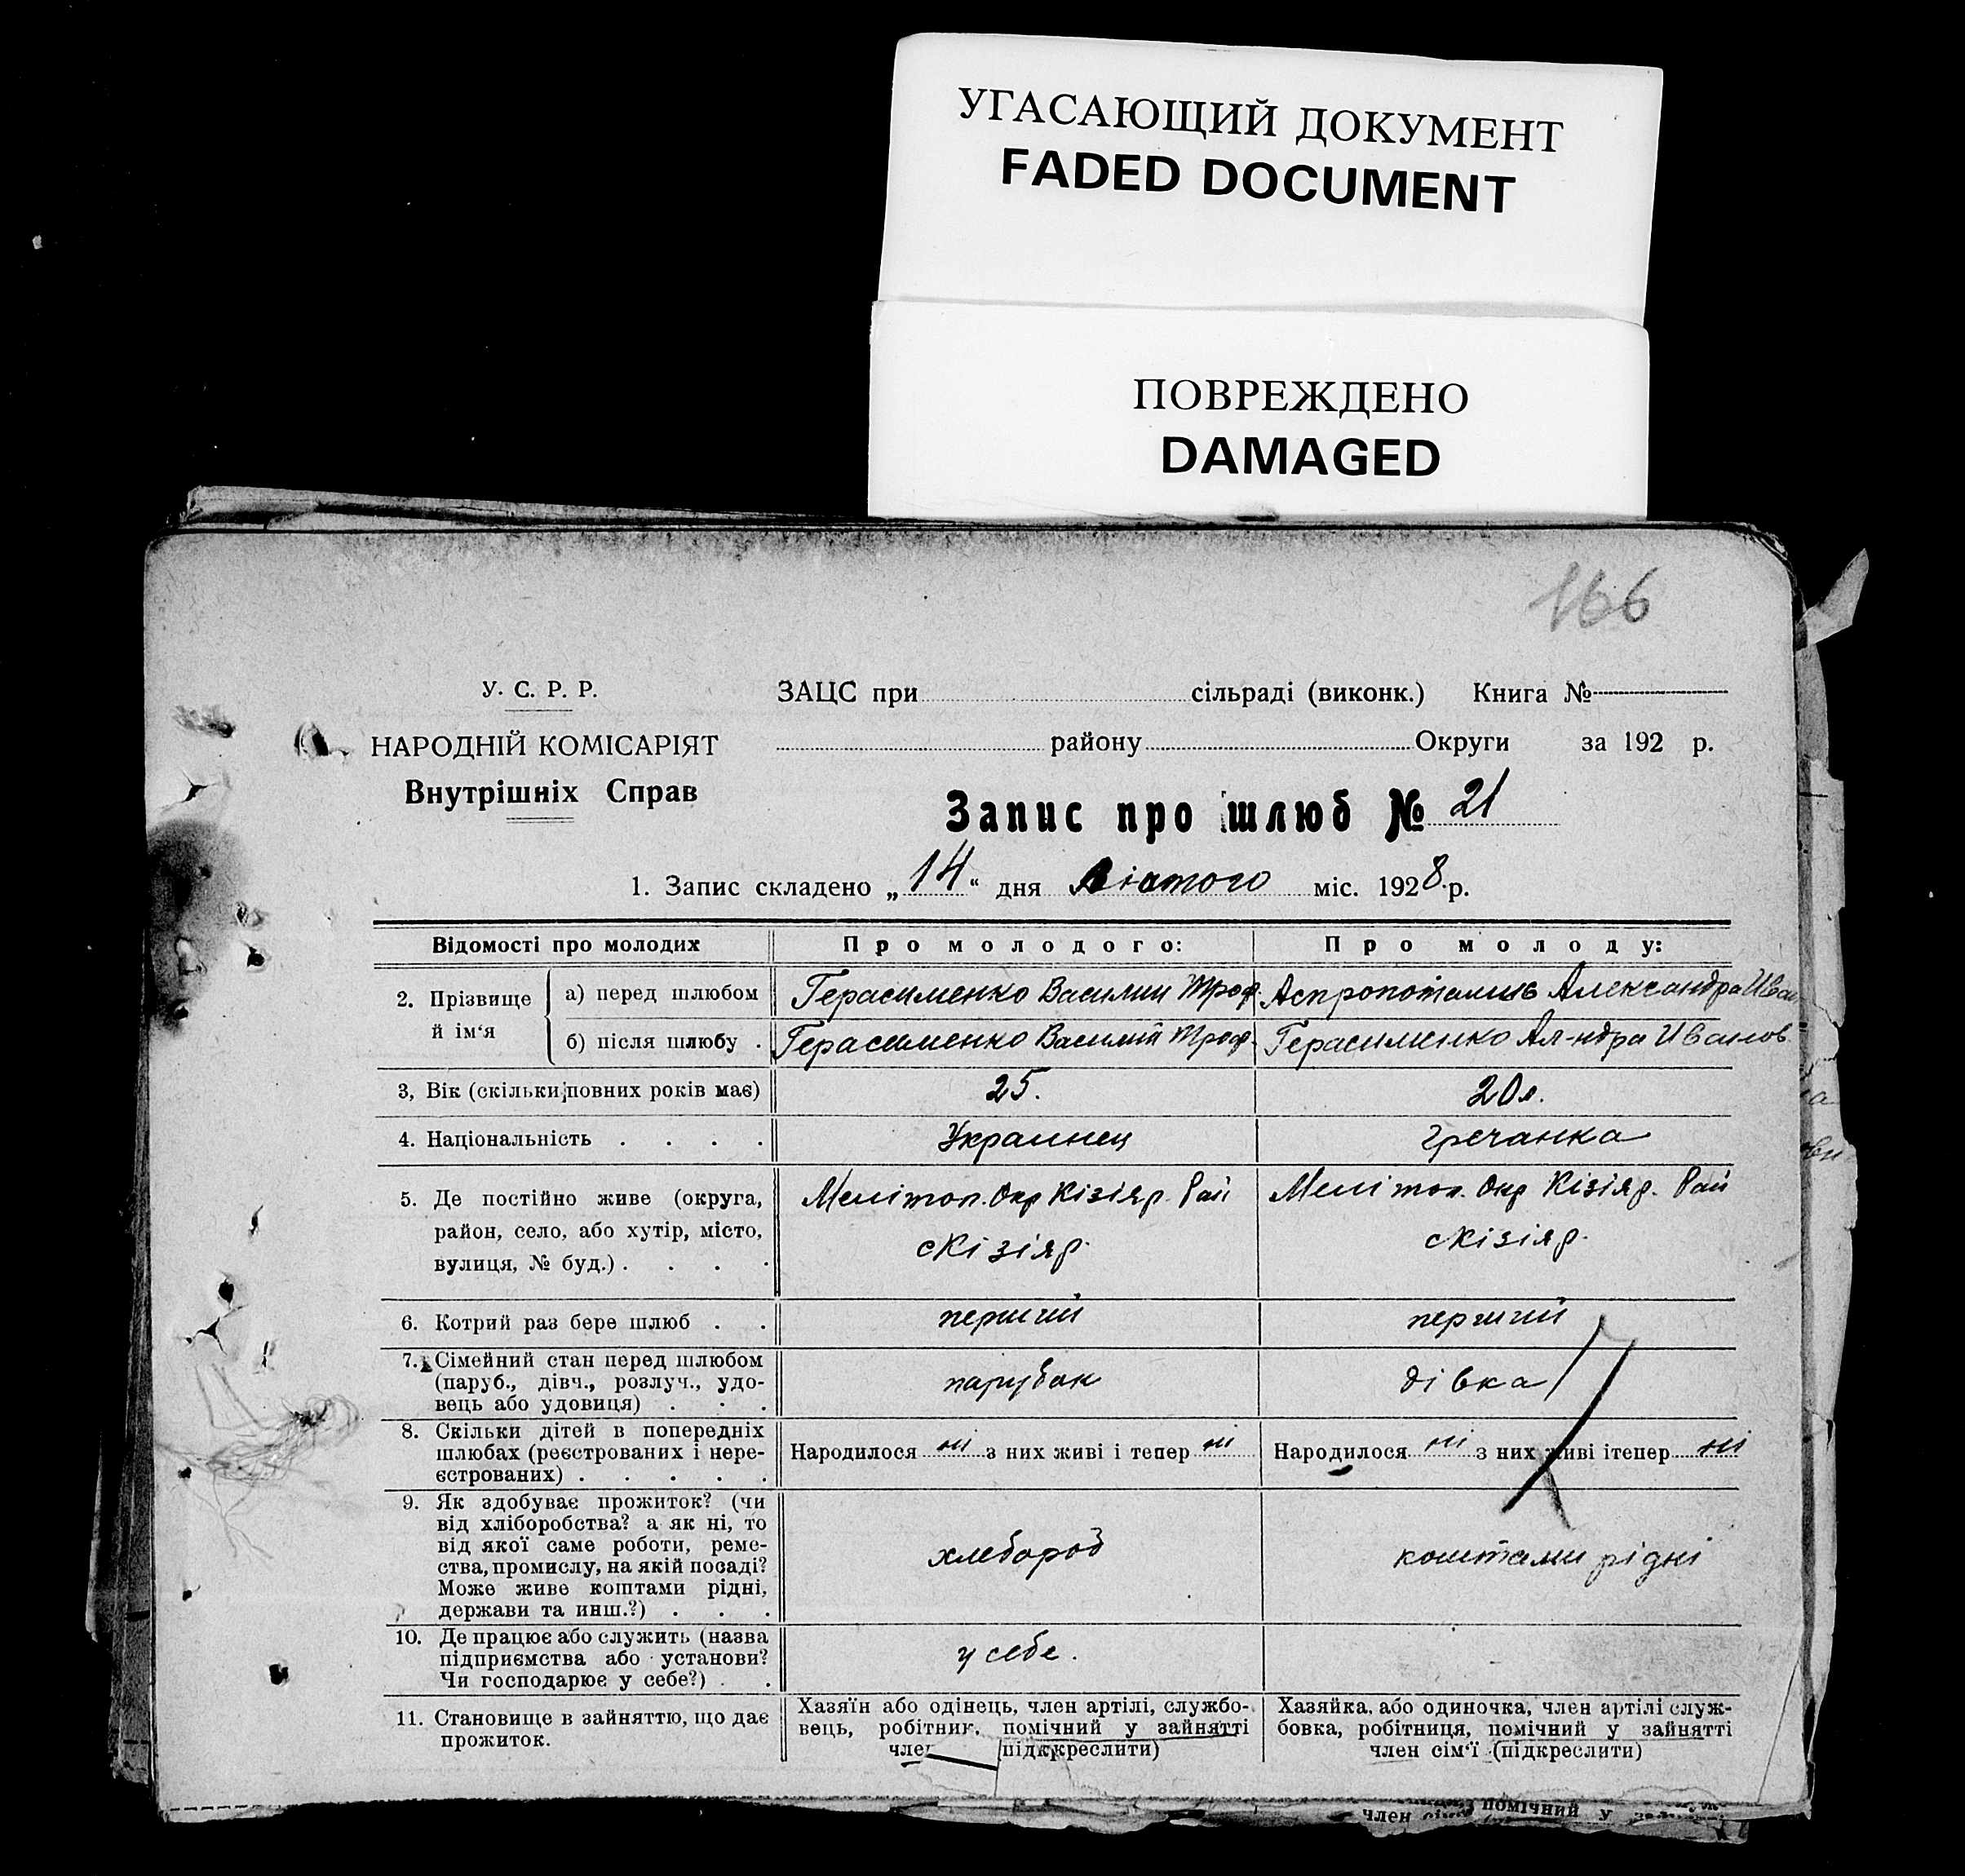 УГАСАЮЩИЙ ДОКУМЕНТ
FADED DOCUMENT
ПОВРЕЖДЕНО
DAMAGED
166
У. С. Р. Р.
НАРОДНІЙ КОМІСАРІЯТ
Внутрішніх Справ
ЗАЦС при сільраді (виконк.) Книга №
району Округи за 192 р.
Запис про шлюб № 21
1. Запис складено „14“ дня Лютого міс. 1928 р.
Відомості про молодих
Про молодого:
Про молоду:
2. Прізвище й ім‘я
а) перед шлюбом
Герасименко Василий Троф.
Александра Иван
б) після шлюбу .
Герасименко Василий Троф.
Герасименко Ал-ндра Иванов.
3, Вік (скільки повних років має)
25.
20л.
4. Національність . . . .
Украинец
гречанка
5. Де постійно живе (округа,
район, село, або хутір, місто,
вулиця, № буд.) . . . .
Мелітоп. Окр Кізіяр. Рай
с Кізіяр.
Мелітоп. Окр Кізіяр. Рай
с Кізіяр.
6. Котрий раз бере шлюб . .
перший
перший
7. Сімейний стан перед шлюбом
(паруб., дівч., розлуч., удо-
вець або удовиця) . . .
парубок
дівка
8. Скільки дітей в попередніх
шлюбах (реєстрованих і нере-
єстрованих) . . . . .
Народилося ні з них живі і тепер ні
Народилося ні з них живі ітепер ні
9. Як здобуває прожиток? (чи
від хліборобства? а як ні, то
від якої саме роботи, реме-
ства, промислу, на якій посаді?
Може живе коштами рідні,
держави та инш.?) . . .
хлебороб
коштами рідні
10. Де працює або служить (назва
підприємства або установи?
Чи господарює у себе?) . .
у себе.
11. Становище в зайняттю, що дає
прожиток.
Хазяїн або одінець, член артілі, службо-
вець, робітник, помічний у зайнятті
член (підкреслити)
Хазяйка, або одиночка, член артілі служ-
бовка, робітниця, помічний у зайнятті
член сім‘ї (підкреслити)
помічний у
член